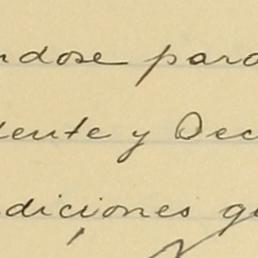 ndose para
dente y Dec
diciones g